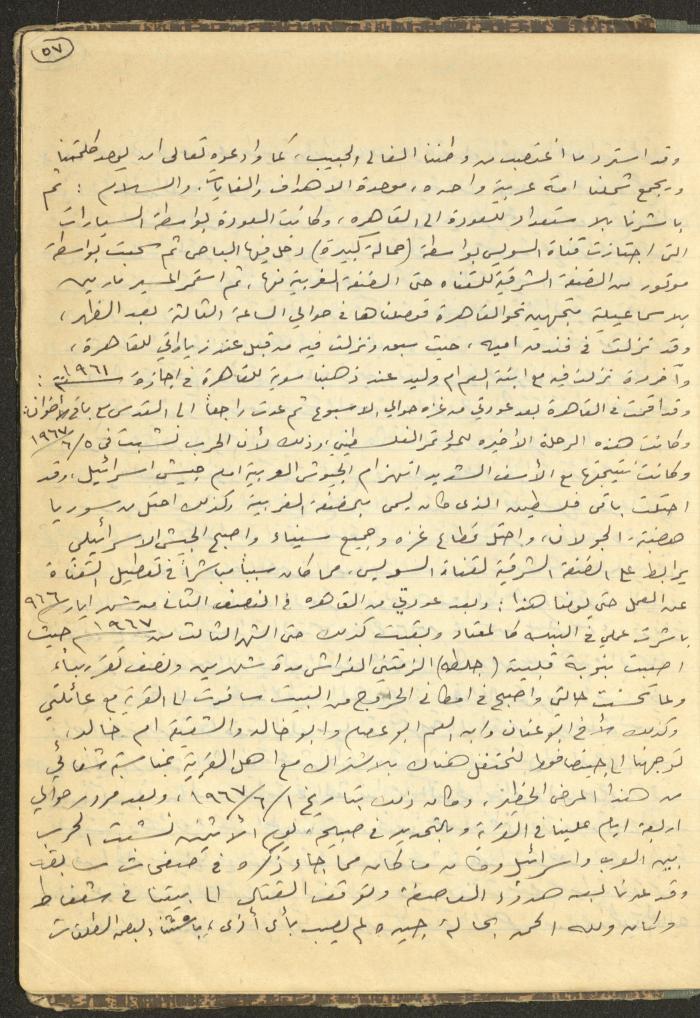 ٥٧
وقد استرد ما اغتصب من وطننا الغالي والحبيب، كما وادعوه تعالى ان يوحد كلمتنا
ويجمع شملنا امة عربية واحده، موحدة الاهداف والغايات. والسلام : ثم
باشرنا بالاستعداد للعودة الى القاهره، وكانت العودة بواسطة السيارات
التي اجتازت قناة السويس بواسطة (حمالة كبيرة) دخل فيها الباص ثم سحبت بواسطة
موتور من الضفة الشرقية للقناه حتى الضفة الغربية منها، ثم استمر المسير مارين
بالاسماعيلية متجهين نحو القاهرة فوصلناها في حوالي الساعة الثالثة بعد الظهر،
وقد نزلت في فندق اميه، حيث سبق ونزلت فيه من قبل عند زياراتي للقاهرة،
وآخر مرة نزلت فيه مع ابنة العم ام وليد عند ذهبنا سوية للقاهرة في اجازة سنة ١٩٦١ :
وقد اقمت في القاهرة بعد عودتي من غزه حوالي الاسبوع ثم عدت راجعاً الى القدس مع باقي الاخوان:
وكانت هذه الرحلة الأخيره للمؤتمر الفلسطيني، وذلك لأن الحرب نشبت في ٥/٦/١٩٦٧
وكانت نتيجتها مع الأسف الشديد انهزام الجيوش العربية امام جيش اسرائيل، وقد
احتلت باقي فلسطين الذي كان يسمى بالضفة الغربية وكذلك احتل من سوريا
هضبة الجولان، واحتل قطاع غزه وجميع سيناء واصبح الجيش الاسرائيلي
يرابط على الضفة الشرقية لقناة السويس، مما كان سبباً مباشراً في تعطيل القناة
عن العمل حتى يومنا هذا: وبعد عودتي من القاهره في النصف الثاني من شهر ايار ٩٦٦
باشرت عملي في البنك كالمعتاد وبقيت كذلك حتى الشهر الثالث من ١٩٦٧م حيث
اصبت بنوبة قلبية (جلطه) الزمتني الفراش مدة شهرين ونصف تقريباً،
ولما تحسنت حالتي واصبح في امكاني الخروج من البيت سافرت الى القرية مع عائلتي
وكذلك الأخ ابو عنان وابن العم ابو عصام وابو خالد والشقيقة ام خالد،
توجهنا الى بيت صافوط لنحتفل هناك بالاشتراك مع اهل القرية بمناسبة شفائي
من هذا المرض الخطير، وكان ذلك بتاريخ ١/٦/١٩٦٧، وبعد مرور حوالي
اربعة ايام علينا في القرية وبالتحديد في صبيحة يوم الأثنين نشبت الحرب
بين العرب واسرائيل وكان ما كان مما جاء ذكره في صفحات سابقة
وقد عدنا بعد هدوء العاصفة وتوقف القتال الى بيتنا في شعفاط
وكان ولله الحمد بحالة جيده لم يصب بأي أذى، باستثناء بعض الطلقات